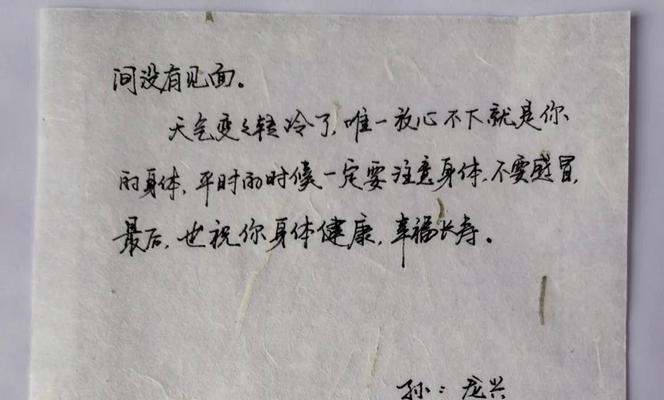 间没有见面。
天气变转冷了,唯一放心不下就是你
的身体,平时的时候一定要注意身体,不要感冒,
最后,也祝你身体健康,幸福长寿。
孙:龙兴